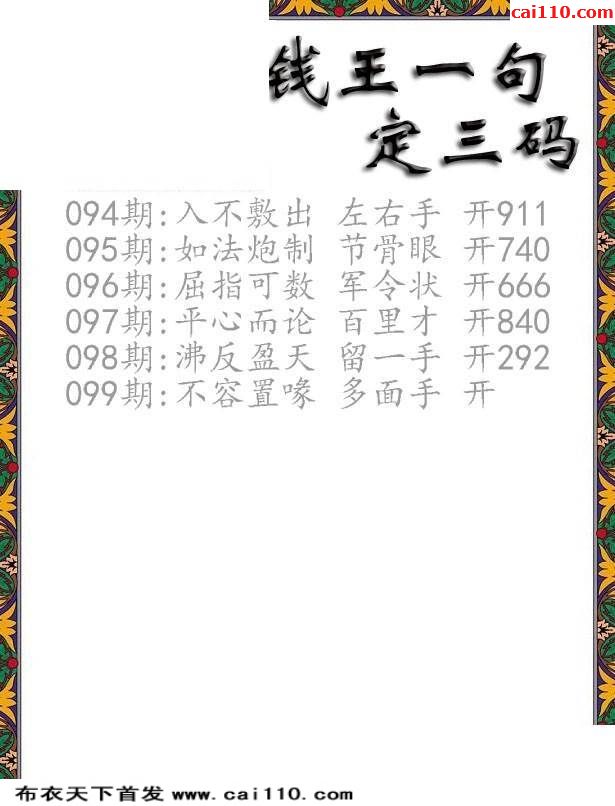 cai110.com
钱王一句
定三码
094期:入不敷出 左右手 开911
095期:如法炮制 节骨眼 开740
096期:屈指可数 军令状 开666
097期:平心而论 百里才 开840
098期:沸反盈天 留一手 开292
099期:不容置喙 多面手 开
布衣天下首发 www.cai110.com